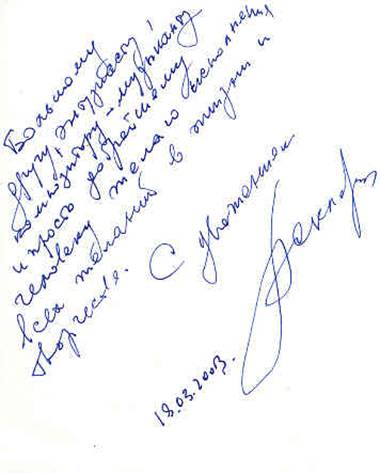 Большому
другу, энтузиасту!
композитору – музыканту
и просто добрейшему
человеку желаю исполнения
всех желаний в жизни и
творчестве. С уважением
18.03.2003.